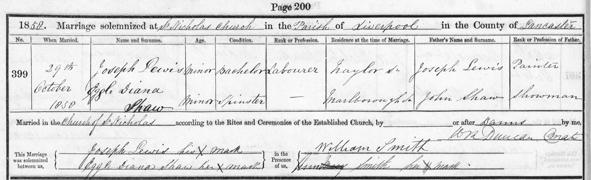 Page 200
1858. Marriage solemnized at St Nicholas Church in the Parish of Liverpool in the County of Lancaster
No. When Married. Name and Surname. Age. Condition. Rank or Profession. Residence at the time of Marriage. Father's Name and Surname. Rank or Profession of Father.
399 29th October 1858 Joseph Lewis Minor Bachelor Labourer Naylor St Joseph Lewis Painter
Eggl Diana Shaw Minor Spinster — Marlborough St John Shaw Showman
Married in the Church of St Nicholas according to the Rites and Ceremonies of the Established Church, by or after Banns by me,
Duncan Curate
This Marriage was solemnized between us, Joseph Lewis his X mark
Eggl Diana Shaw her X mark
in the Presence of us, William Smith
Smith her X mark